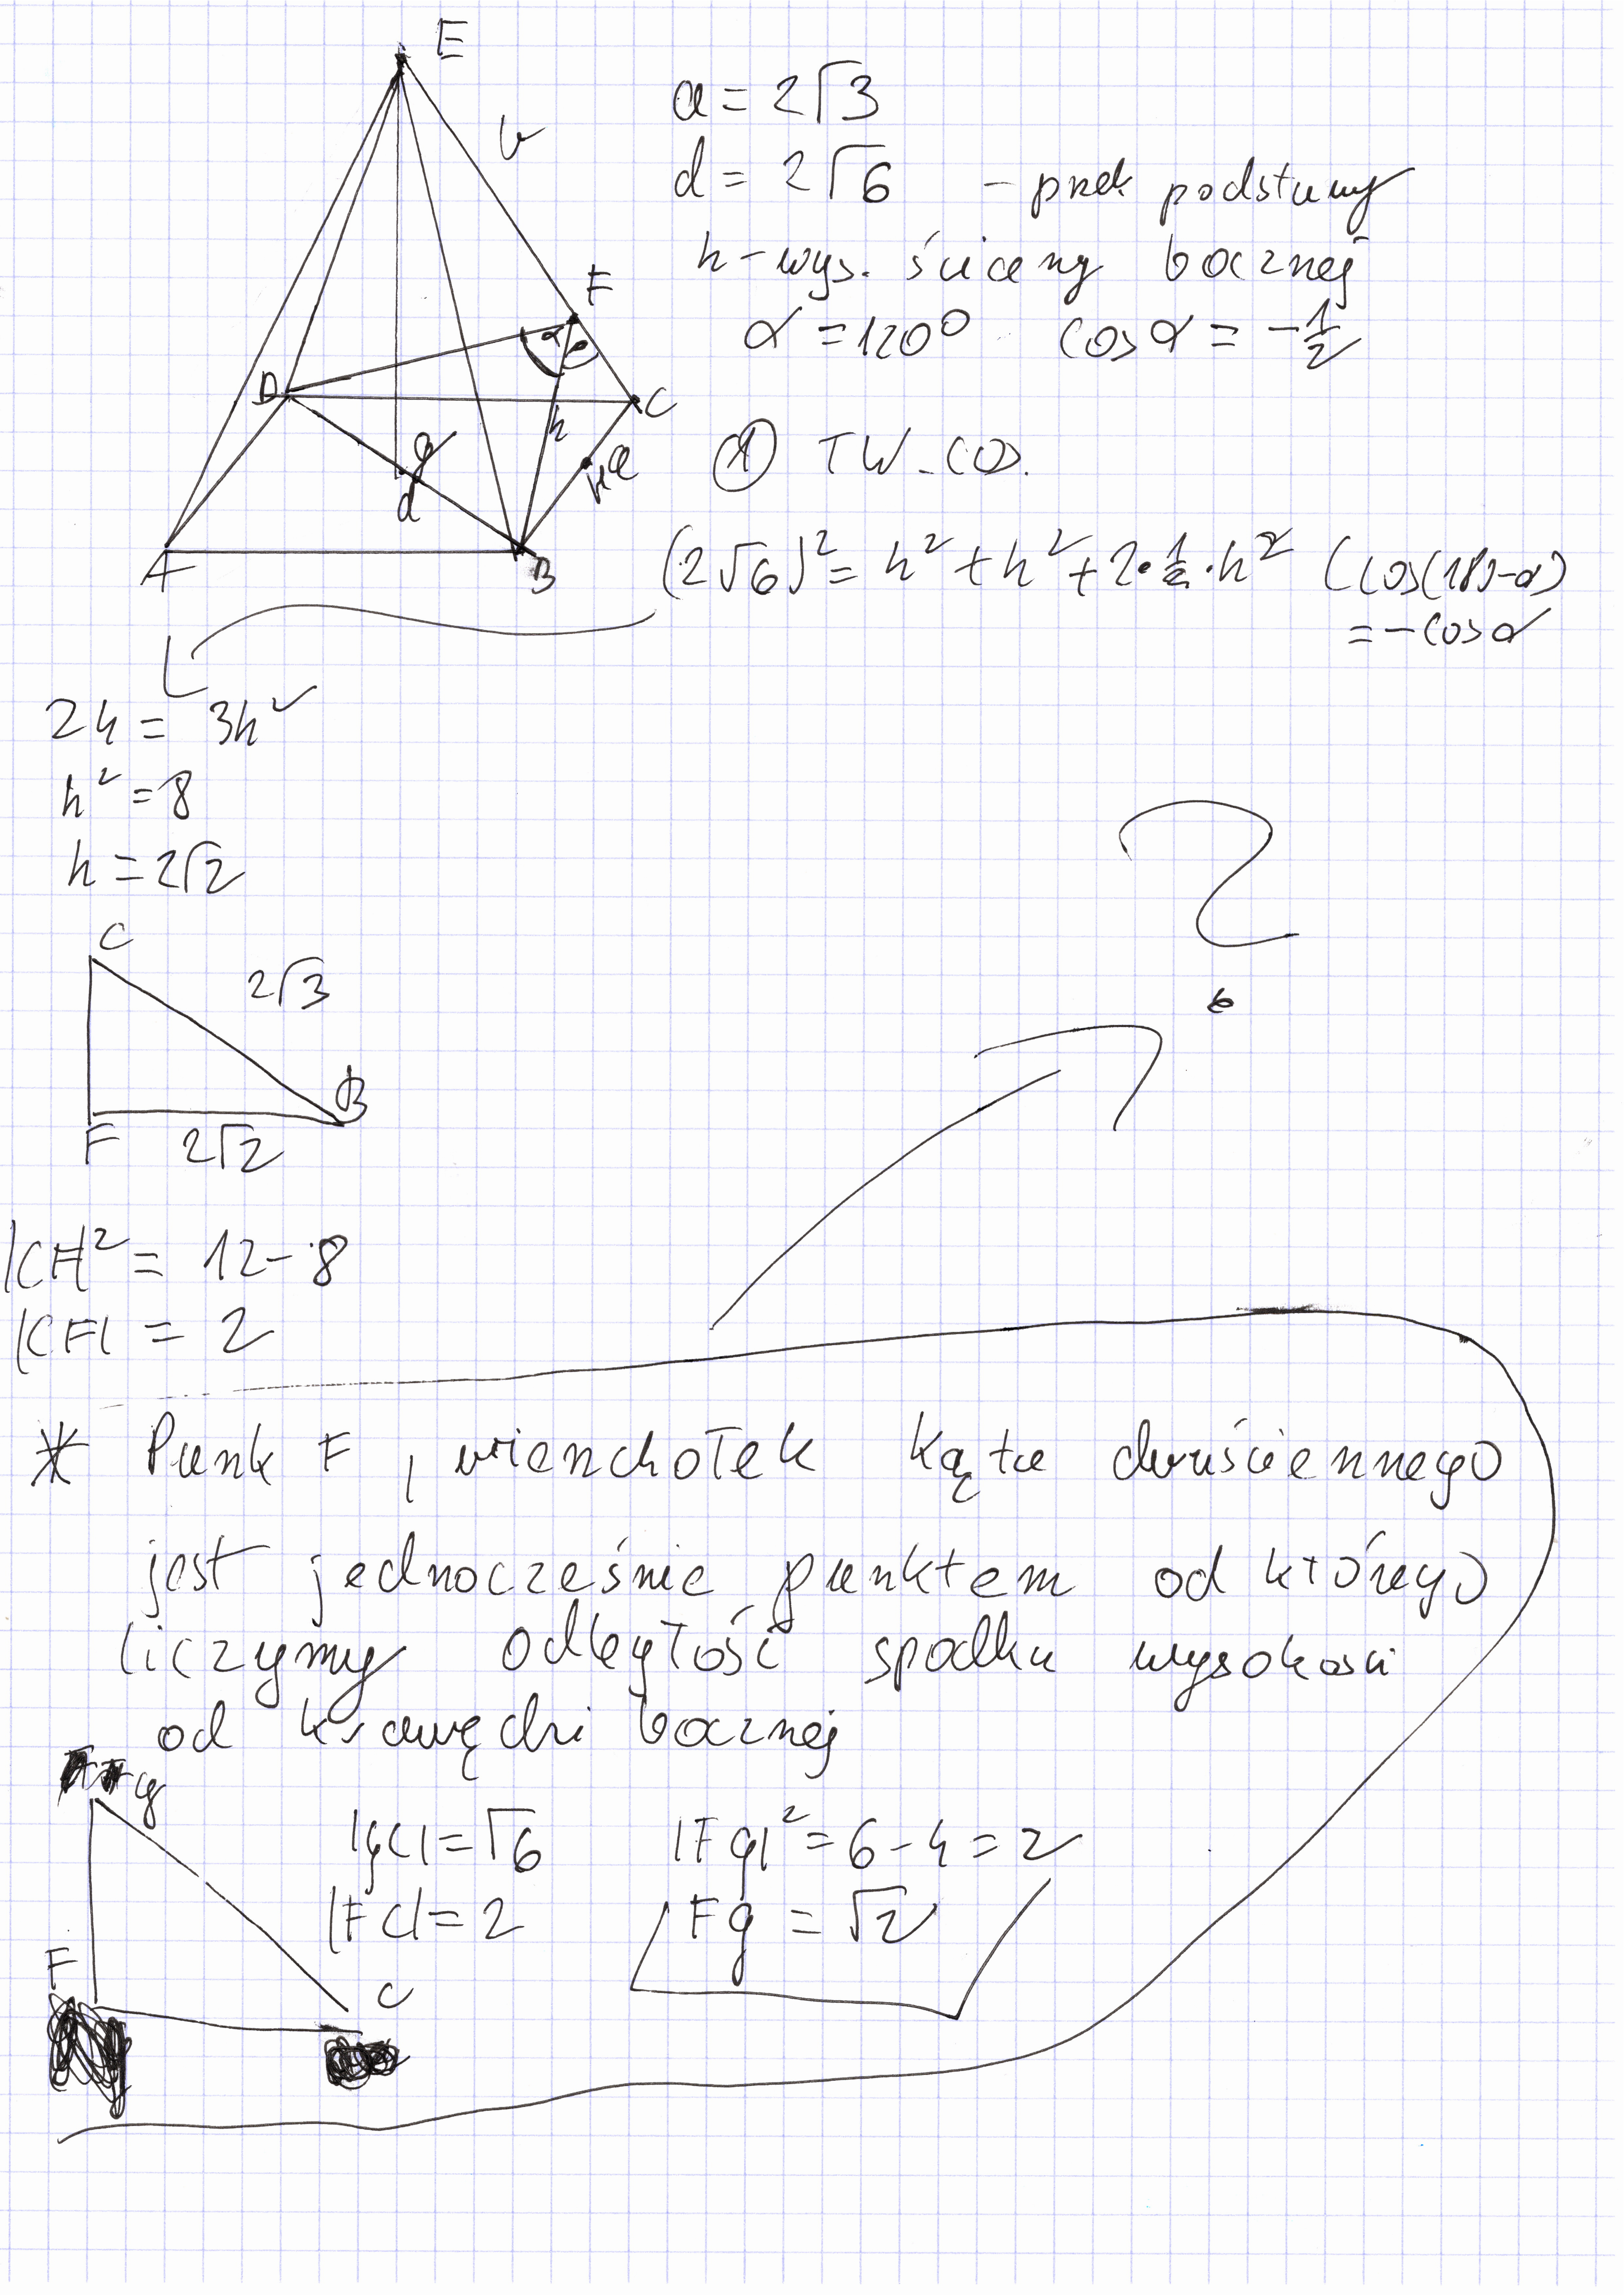 E
b
a = 2√3
d = 2√6 - przek podstawy
h - wys. ściany bocznej
α = 120° cos α = -1/2
F
α
D
C
h
g
d
H a
A
B
① TW. COS.
(2√6)² = h² + h² + 2·1/2·h² (cos(180-α)
= -cos α
24 = 3h²
h² = 8
h = 2√2
C
2√3
B
F 2√2
?
|CF|² = 12 - 8
|CF| = 2
* Punk F, wierzchołek kąta dwuściennego
jest jednocześnie punktem od którego
liczymy odległość spodku wysokosci
od krawędzi bocznej
g
|gC| = √6 |Fg|² = 6 - 4 = 2
|FC| = 2 Fg = √2
F
C